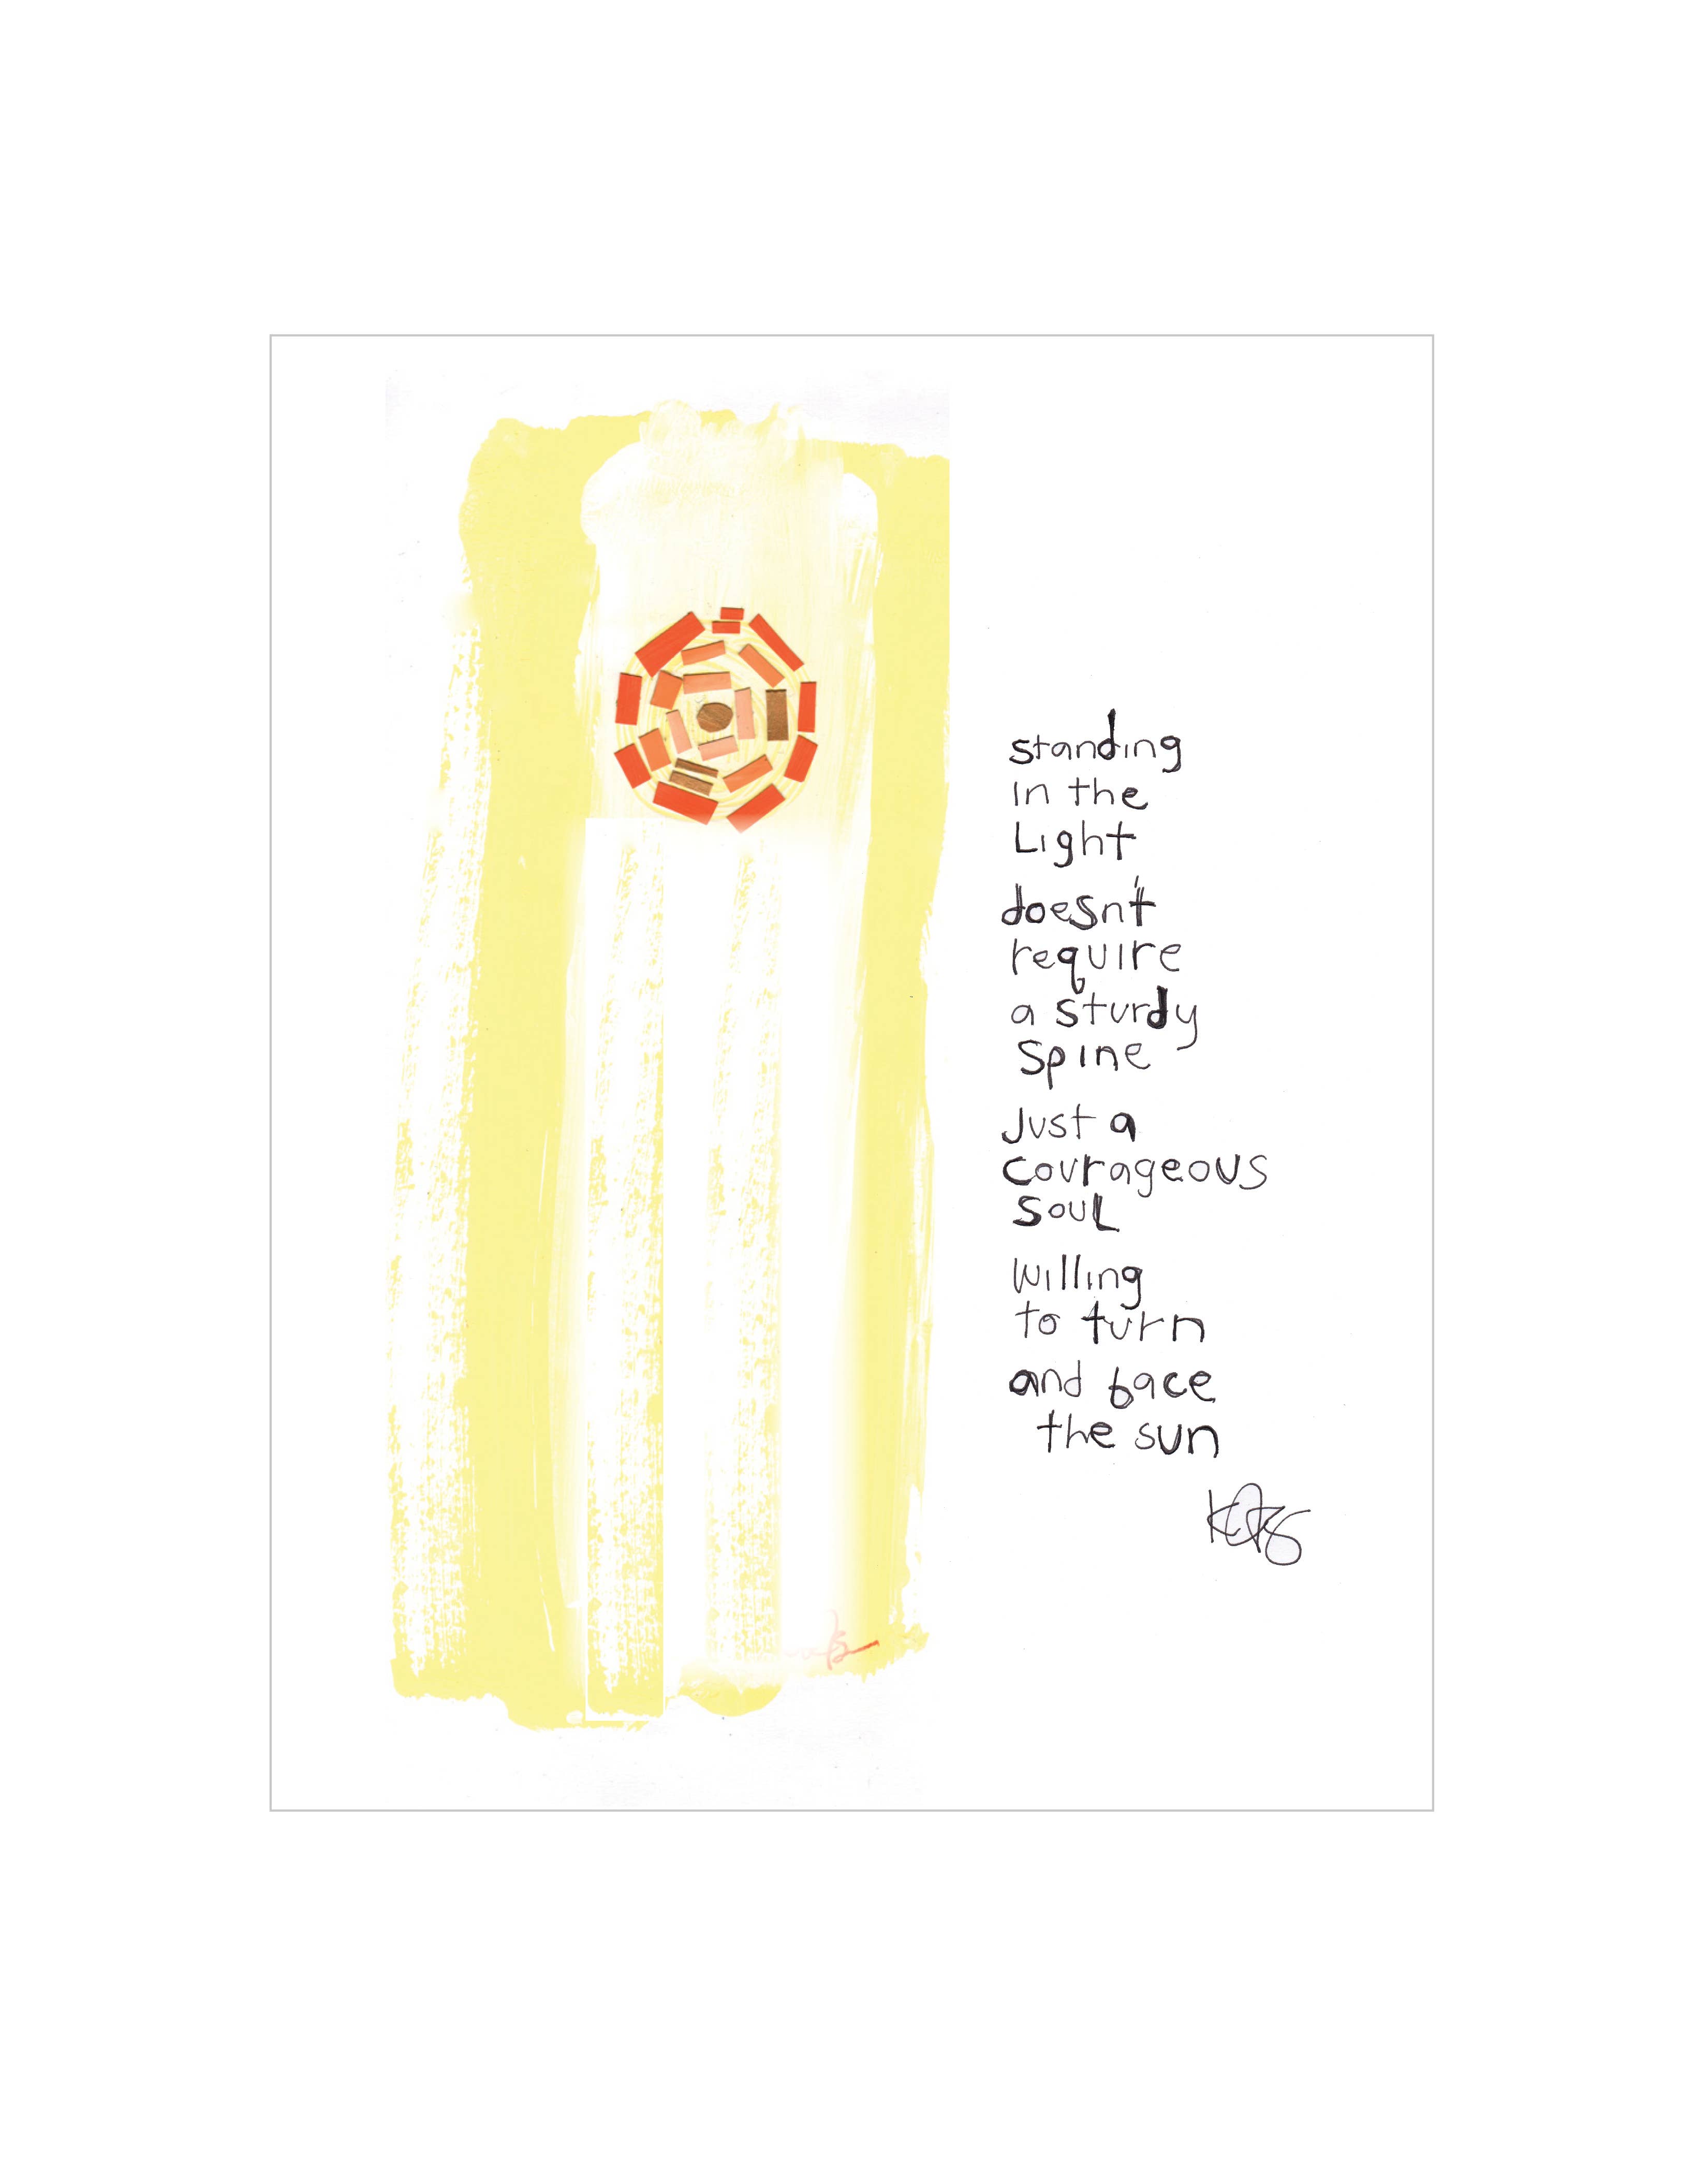 standing
in the
Light
doesn't
require
a sturdy
Spine
Just a
courageous
soul
willing
to turn
and face
the sun